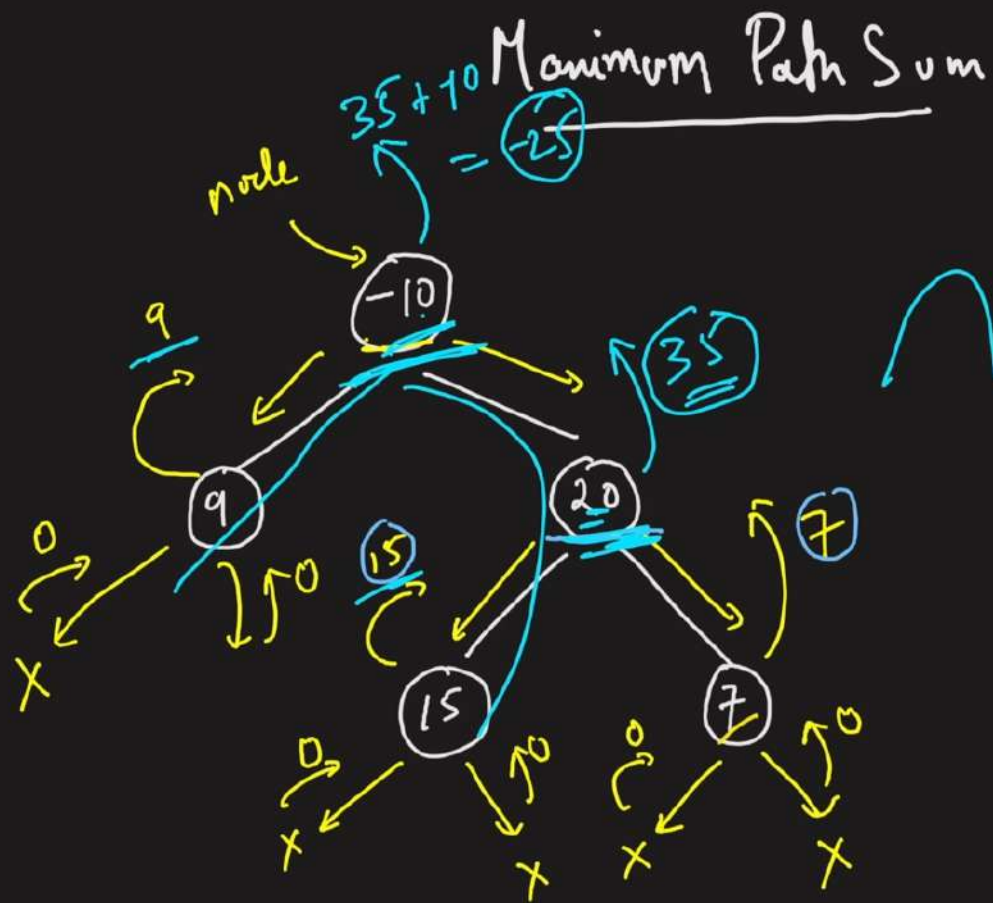 Maximum Path Sum
35 + 10
= -25
node
-10
9
35
9
20
0
0
15
7
X
15
7
0
0
0
0
X
X
X
X